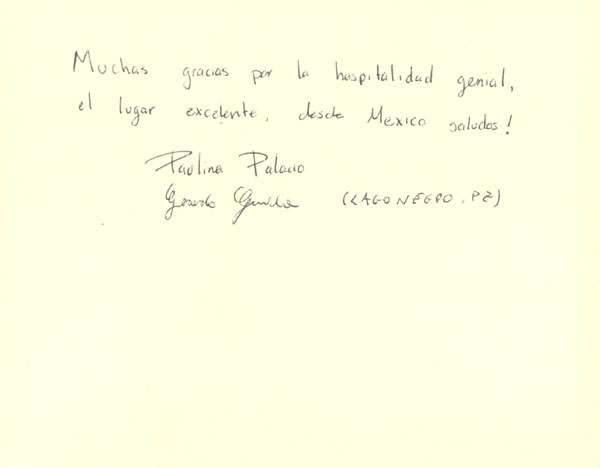 Muchas gracias por la hospitalidad genial,
el lugar excelente, desde Mexico saludos!
Paulina Palacio
(LAGONEGRO. PZ)